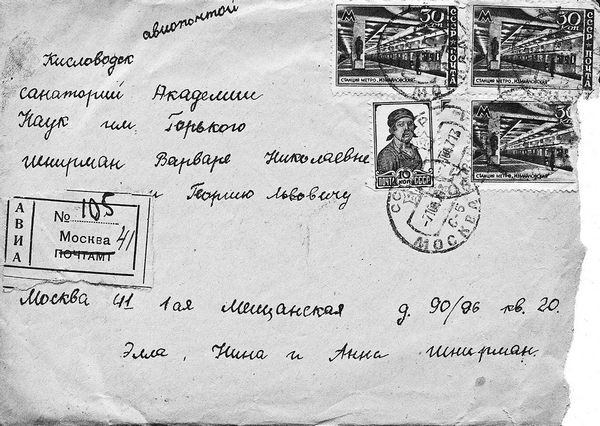 авиапочтой
Кисловодск
санаторий Академии
Наук им. Горького
Шнирман Варваре Николаевне
и Георгию Львовичу
АВИА
№ 105
Москва 41
ПОЧТАМТ
Москва 41 1ая Мещанская д. 90/96 кв. 20.
Элла, Нина и Анна Шнирман.
30 КОП
СССР ПОЧТА
СТАНЦИЯ МЕТРО „ИЗМАЙЛОВСКАЯ"
30 КОП
СССР ПОЧТА
СТАНЦИЯ МЕТРО „ИЗМАЙЛОВСКАЯ"
ПОЧТА 10 КОП СССР
30
СТАНЦИЯ МЕТРО „ИЗМАЙЛОВСКАЯ"
МОСКВА